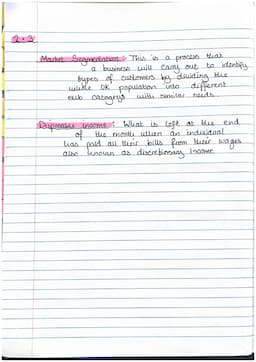 2.3
Market Segmentation : This is a process that
a business will carry out to identify
types of customers by dividing the
whole UK population into different
sub categorys with similar needs.
Disposable Income : What is left at the end
of the month when an individual
has paid all their bills from their wages
also known as discretionary income